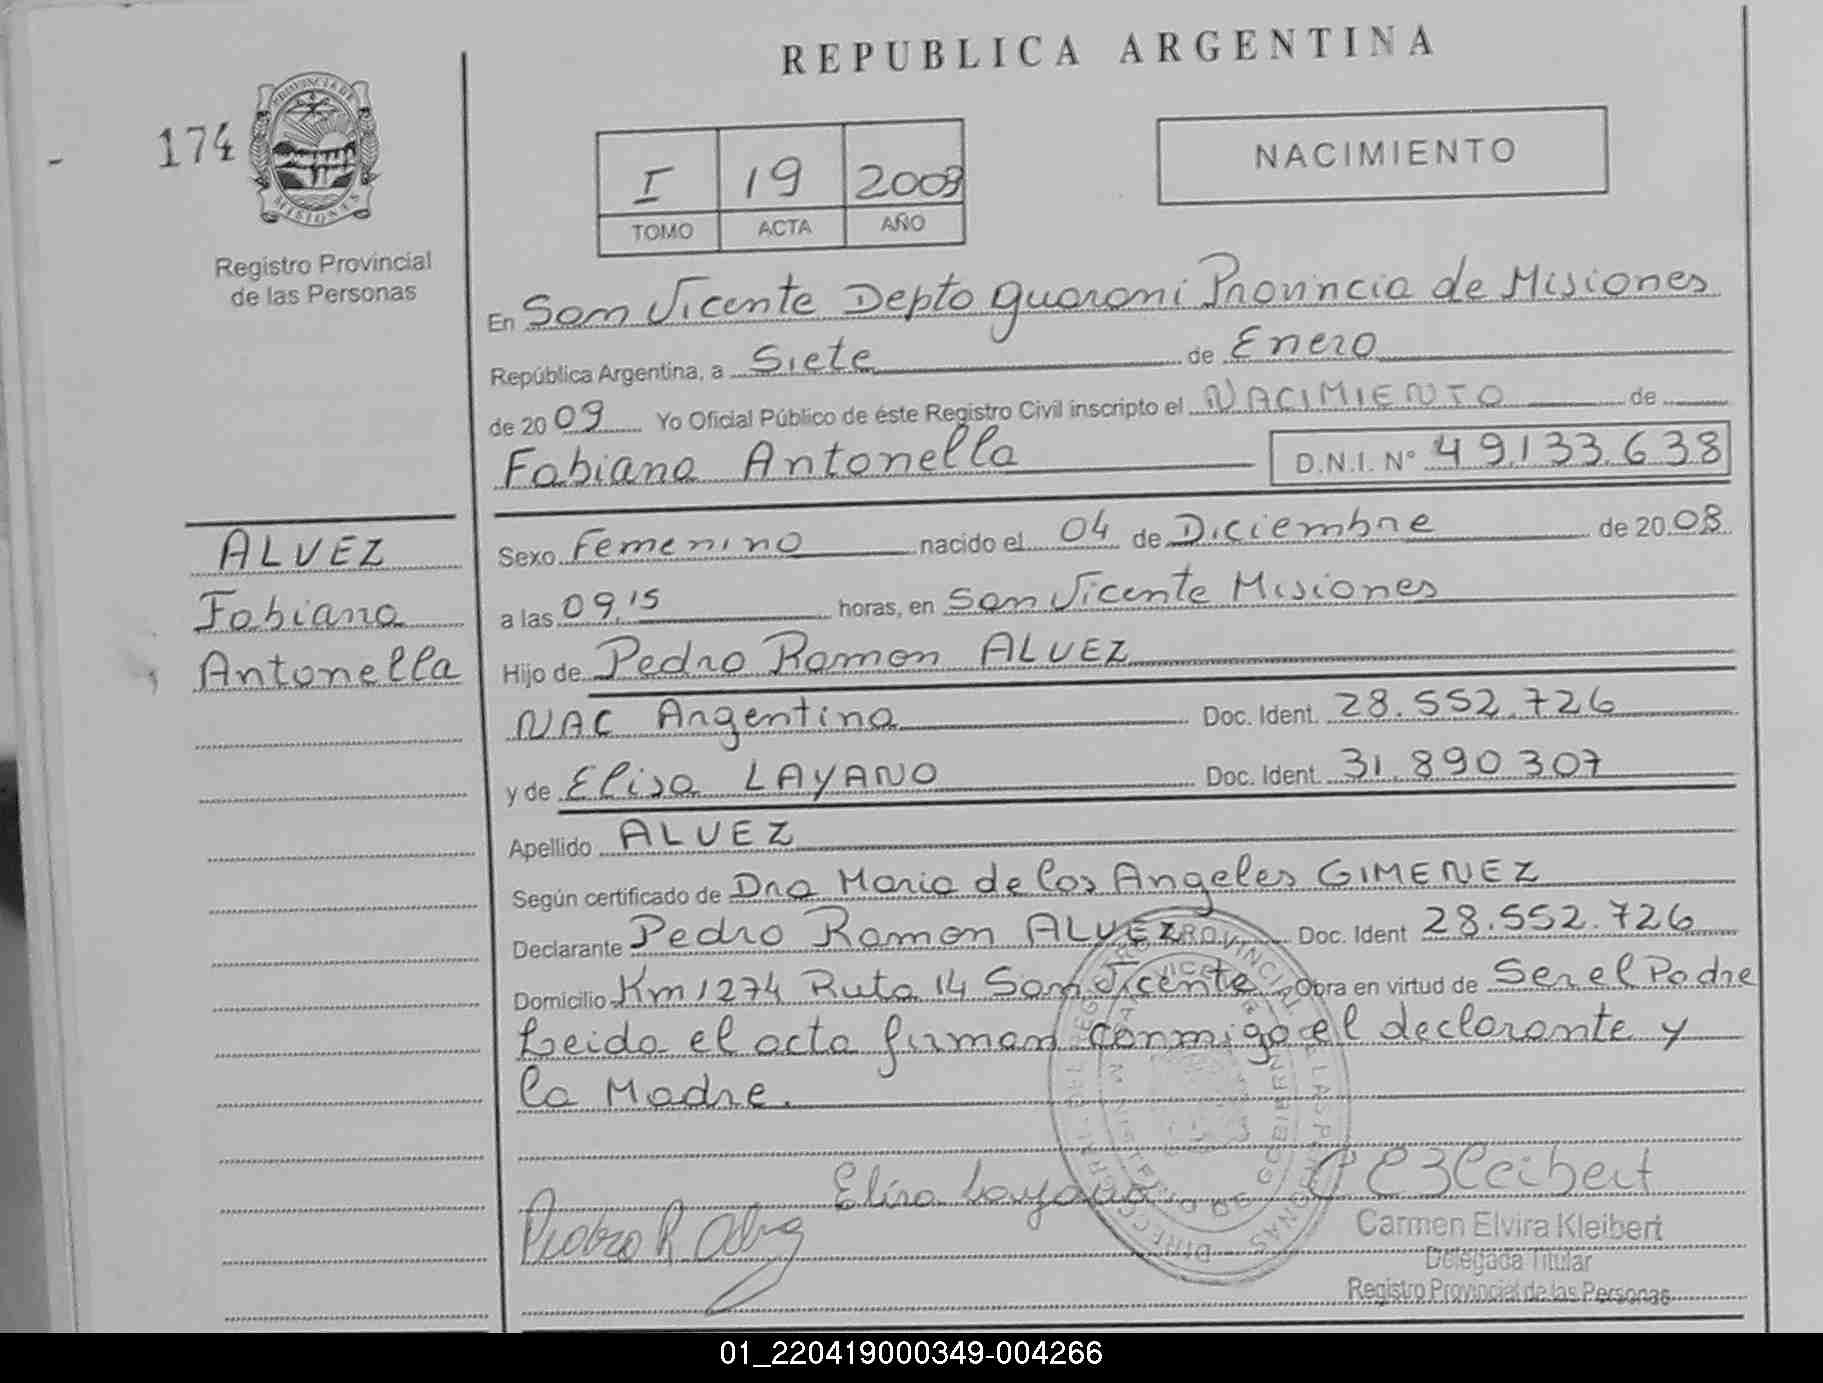 REPUBLICA ARGENTINA
174
PROVINCIA DE
MISIONES
Registro Provincial
de las Personas
I 19 2009
TOMO ACTA AÑO
NACIMIENTO
En San Vicente Depto guarani Provincia de Misiones
República Argentina, a Siete de Enero
de 2009 Yo Oficial Público de éste Registro Civil inscripto el NACIMIENTO de
Fabiana Antonella D.N.I. N° 49.133.638
ALVEZ
Fabiana
Antonella
Sexo Femenino nacido el 04 de Diciembre de 2008
a las 09,15 horas, en San Vicente Misiones
Hijo de Pedro Ramon ALVEZ
NAC Argentina Doc. Ident. 28.552.726
y de Elisa LAYANO Doc. Ident. 31.890307
Apellido ALVEZ
Según certificado de Dra Maria de los Angeles GIMENEZ
Declarante Pedro Ramon ALVEZ Doc. Ident 28.552.726
Domicilio Km 1274 Ruta 14 San Vicente Obra en virtud de Ser el Padre
Leida el acta firman conmigo el declarante y
la Madre.
Elisa Layano
Carmen Elvira Kleibert
Delegada Titular
Registro Provincial de las Personas
01_220419000349-004266